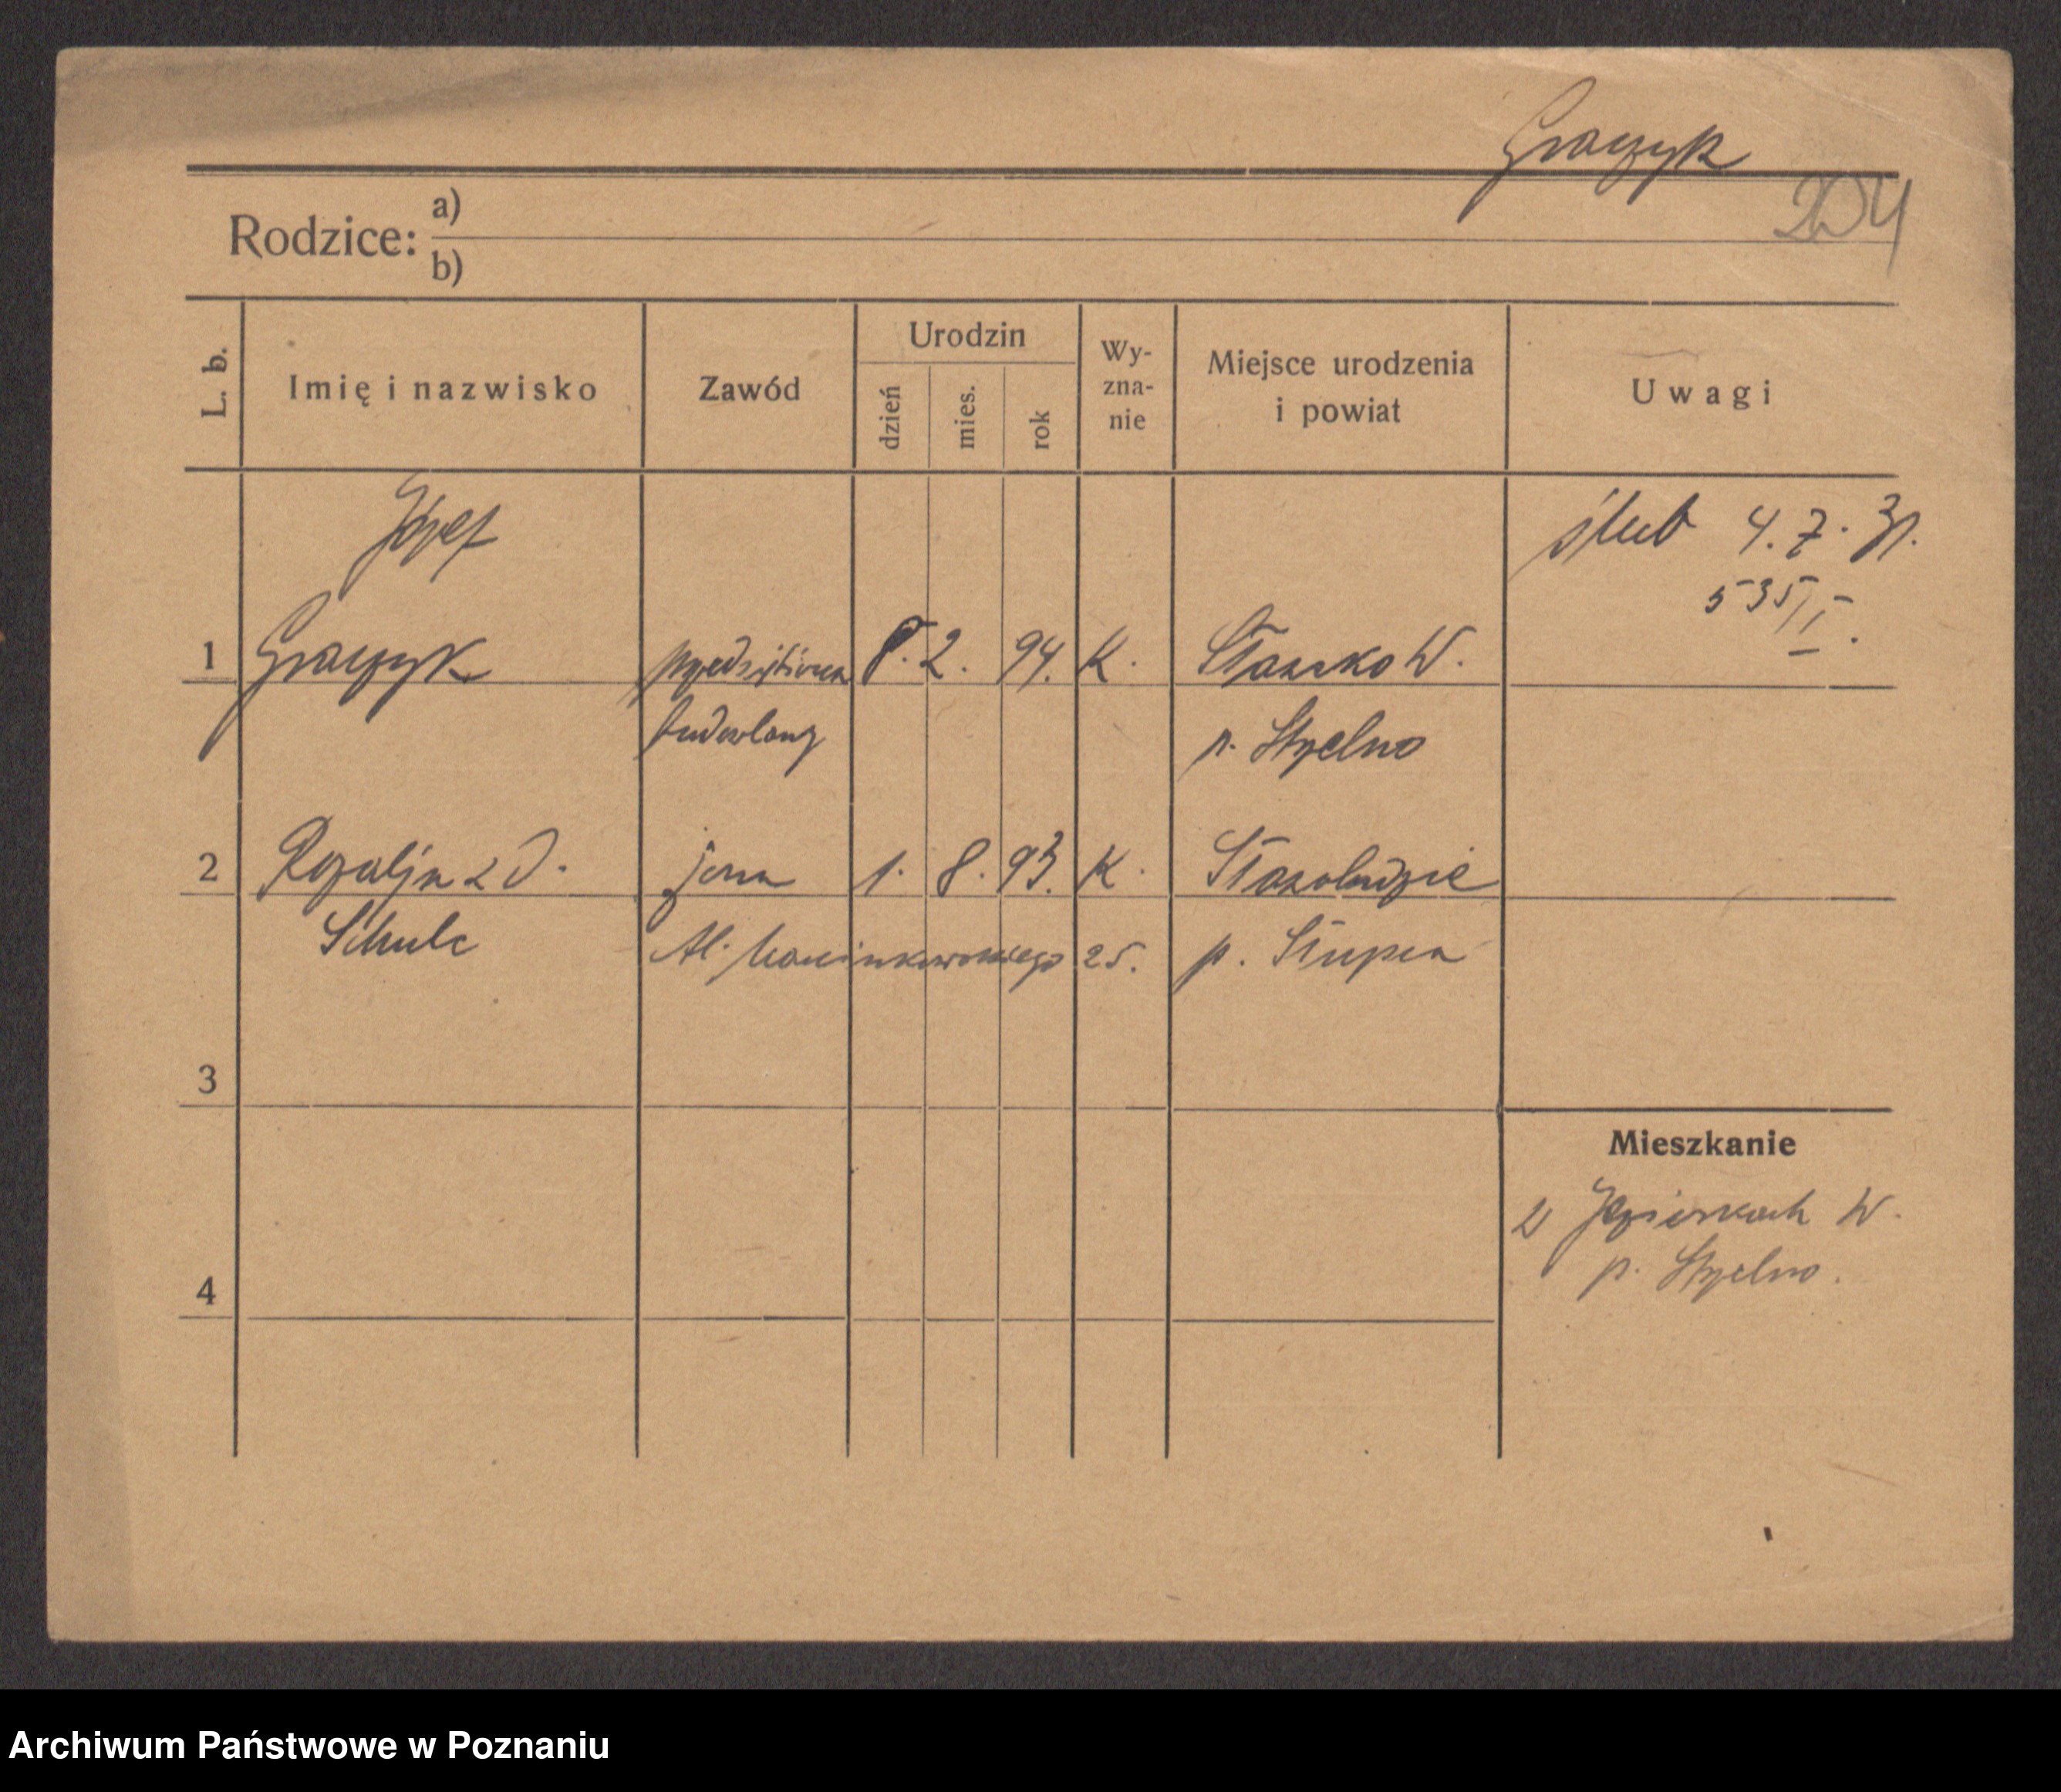 Graczyk
204
Rodzice: a)
b)
L. b.
Imię i nazwisko
Zawód
Urodzin
dzień
mies.
rok
Wy-
zna-
nie
Miejsce urodzenia
i powiat
Uwagi
Józef
ślub 4. 7. 31.
535/I.
1 Graczyk przedsiębiorca 8. 2. 94. K. W.
budowlany p. Strzelno
2 Rozalja z d. żona 1. 8. 93. K.
Schulc Al. Marcinkowskiego 25. p. Słupca
3
Mieszkanie
w Jeziorkach W.
p. Strzelno.
4
Archiwum Państwowe w Poznaniu